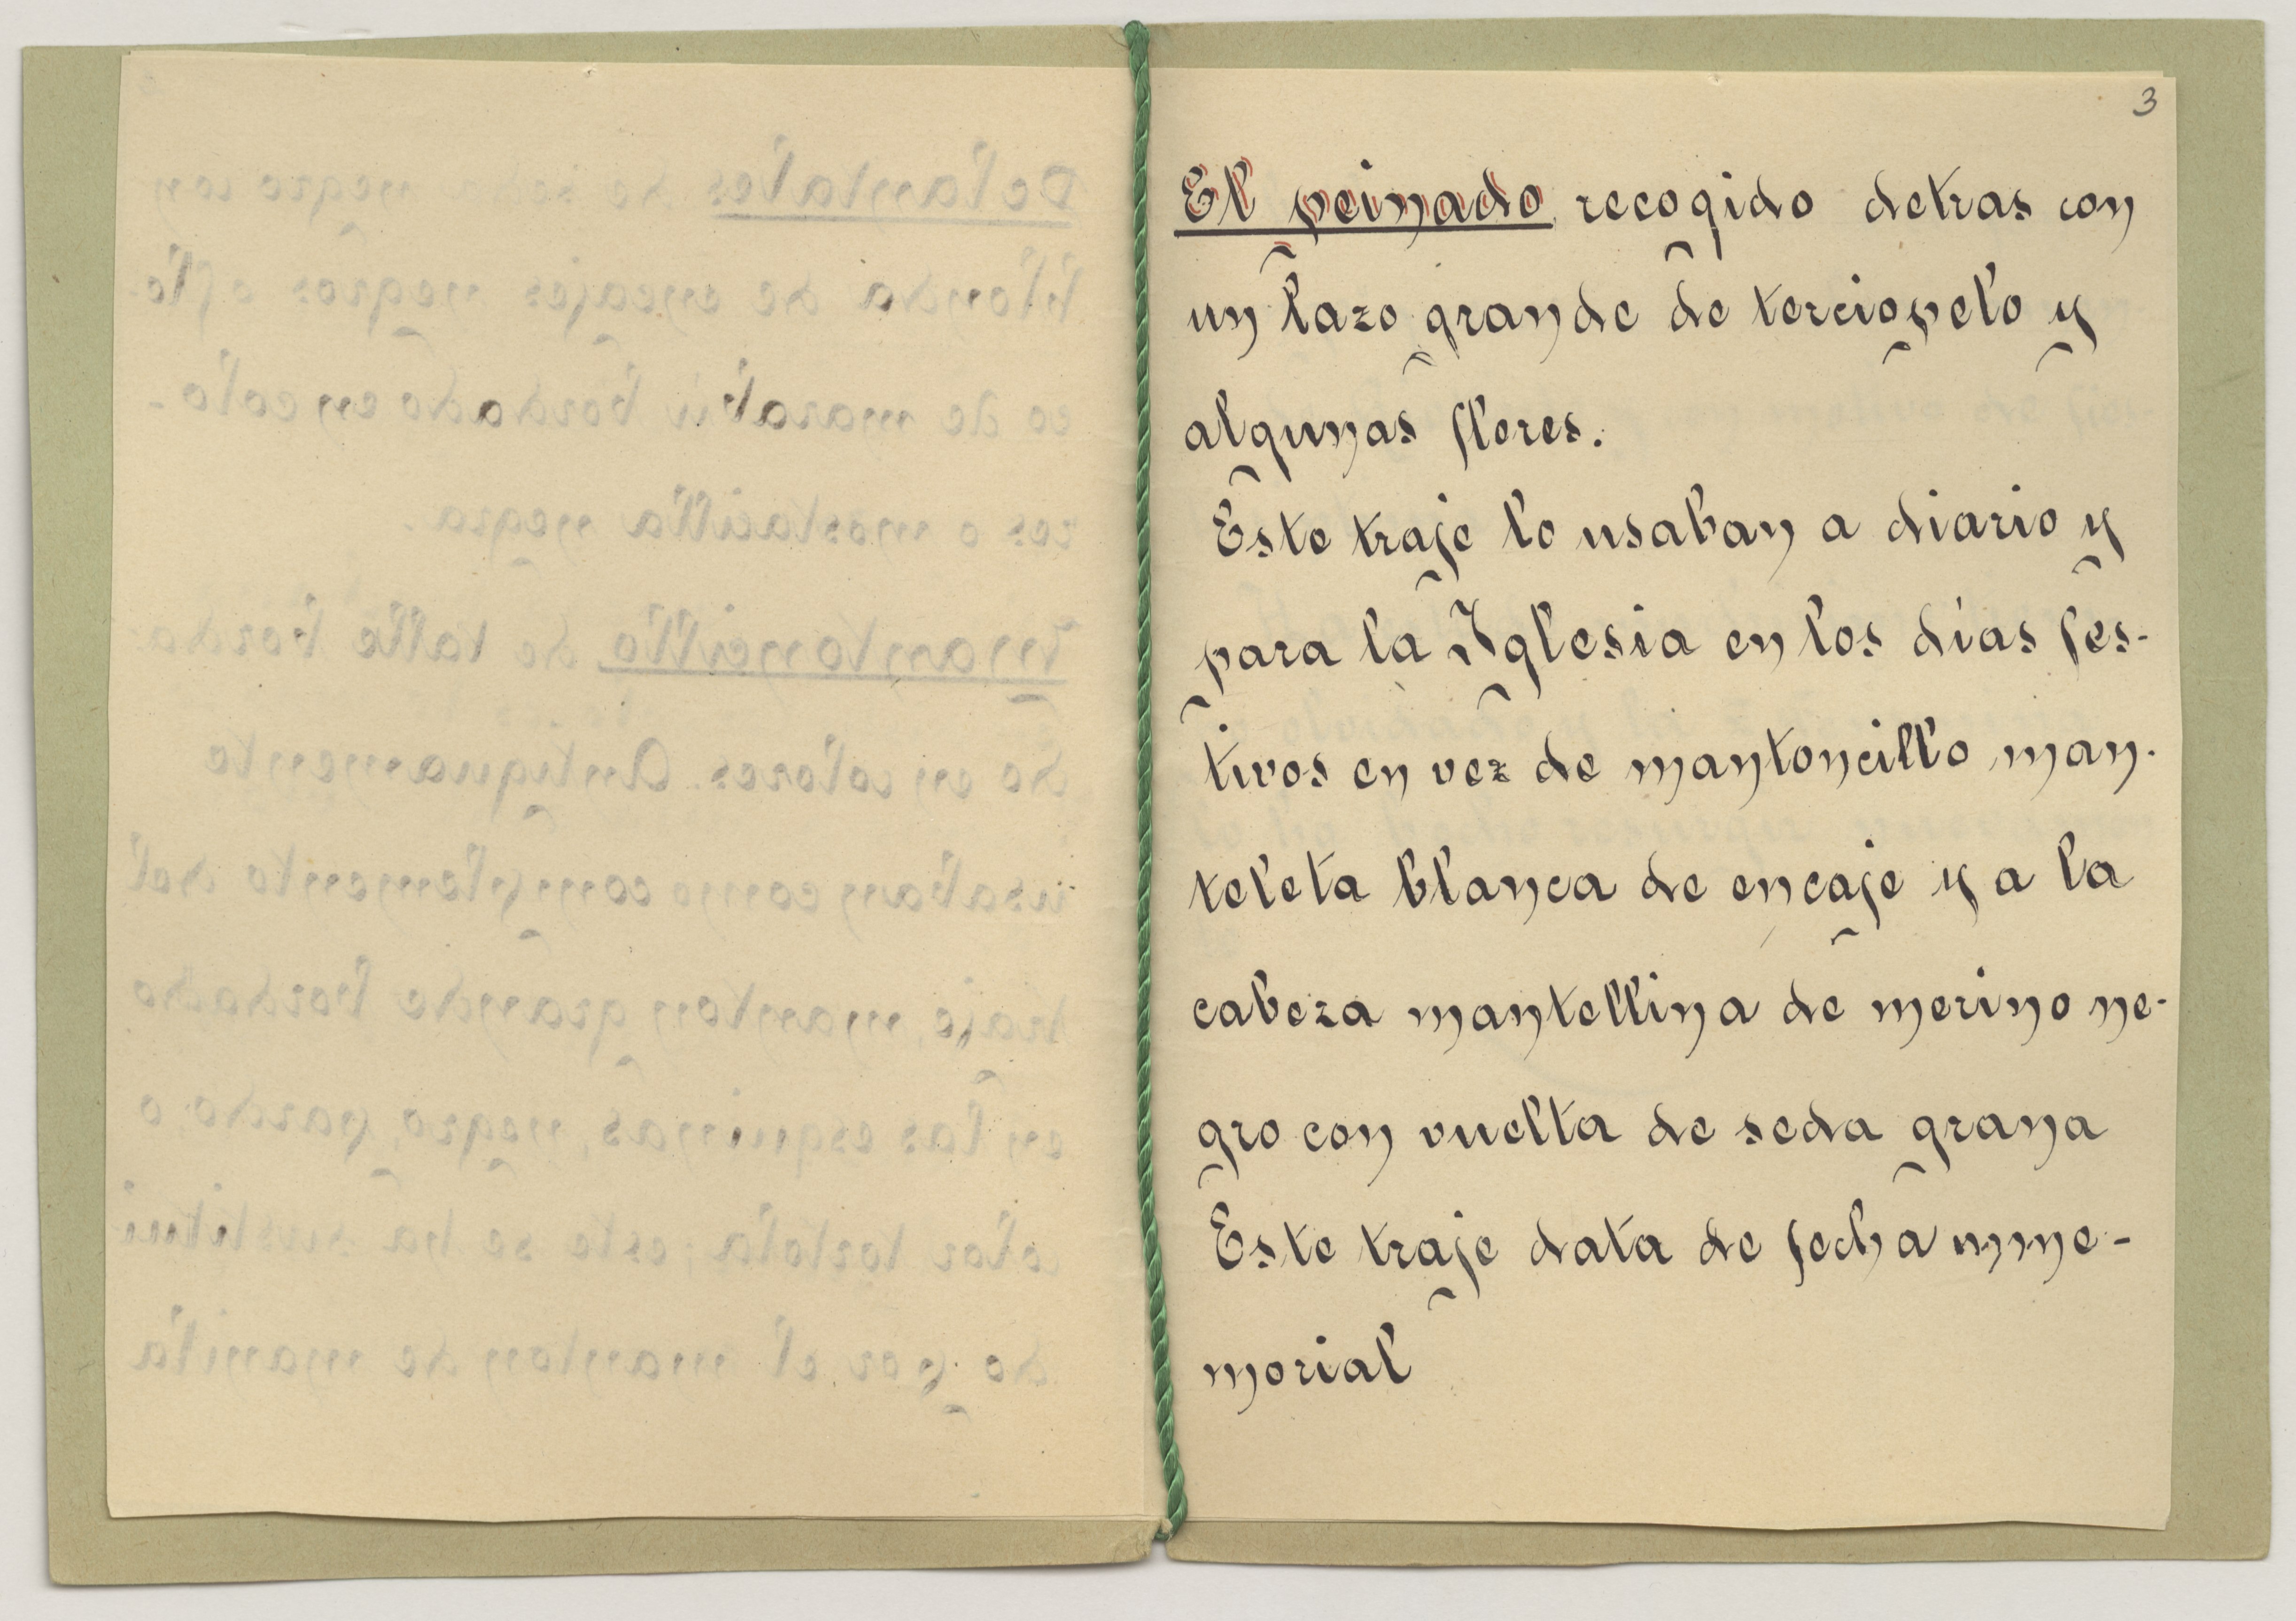 3
El peinado recogido detras con
un lazo grande de terciopelo y
algunas flores.
Este traje lo usaban a diario y
para la Iglesia en los días fes-
tivos en vez de mantoncillo man-
teleta blanca de encaje y a la
cabeza mantellina de merino ne-
gro con vuelta de seda grana
Este traje data de fecha inme-
morial